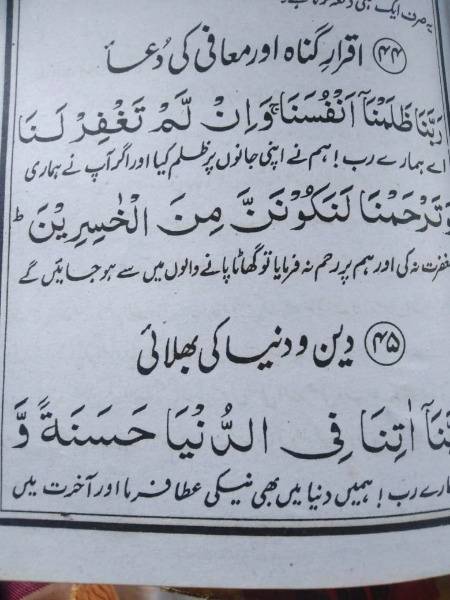 یہ صرف ایک ہی
۴۴ اقرارِ گناہ اور معافی کی دُعا
رَبَّنَا ظَلَمْنَآ اَنْفُسَنَا وَاِنْ لَّمْ تَغْفِرْ لَنَا
اے ہمارے رب! ہم نے اپنی جانوں پر ظلم کیا اور اگر آپ نے ہماری
وَتَرْحَمْنَا لَنَكُوْنَنَّ مِنَ الْخٰسِرِيْنَ ط
مغفرت نہ کی اور ہم پر رحم نہ فرمایا تو گھاٹا پانے والوں میں سے ہو جائیں گے
۴۵ دین و دنیا کی بھلائی
بَّنَآ اٰتِنَا فِي الدُّنْيَا حَسَنَةً وَّ
مارے رب! ہمیں دنیا میں بھی نیکی عطا فرما اور آخرت میں